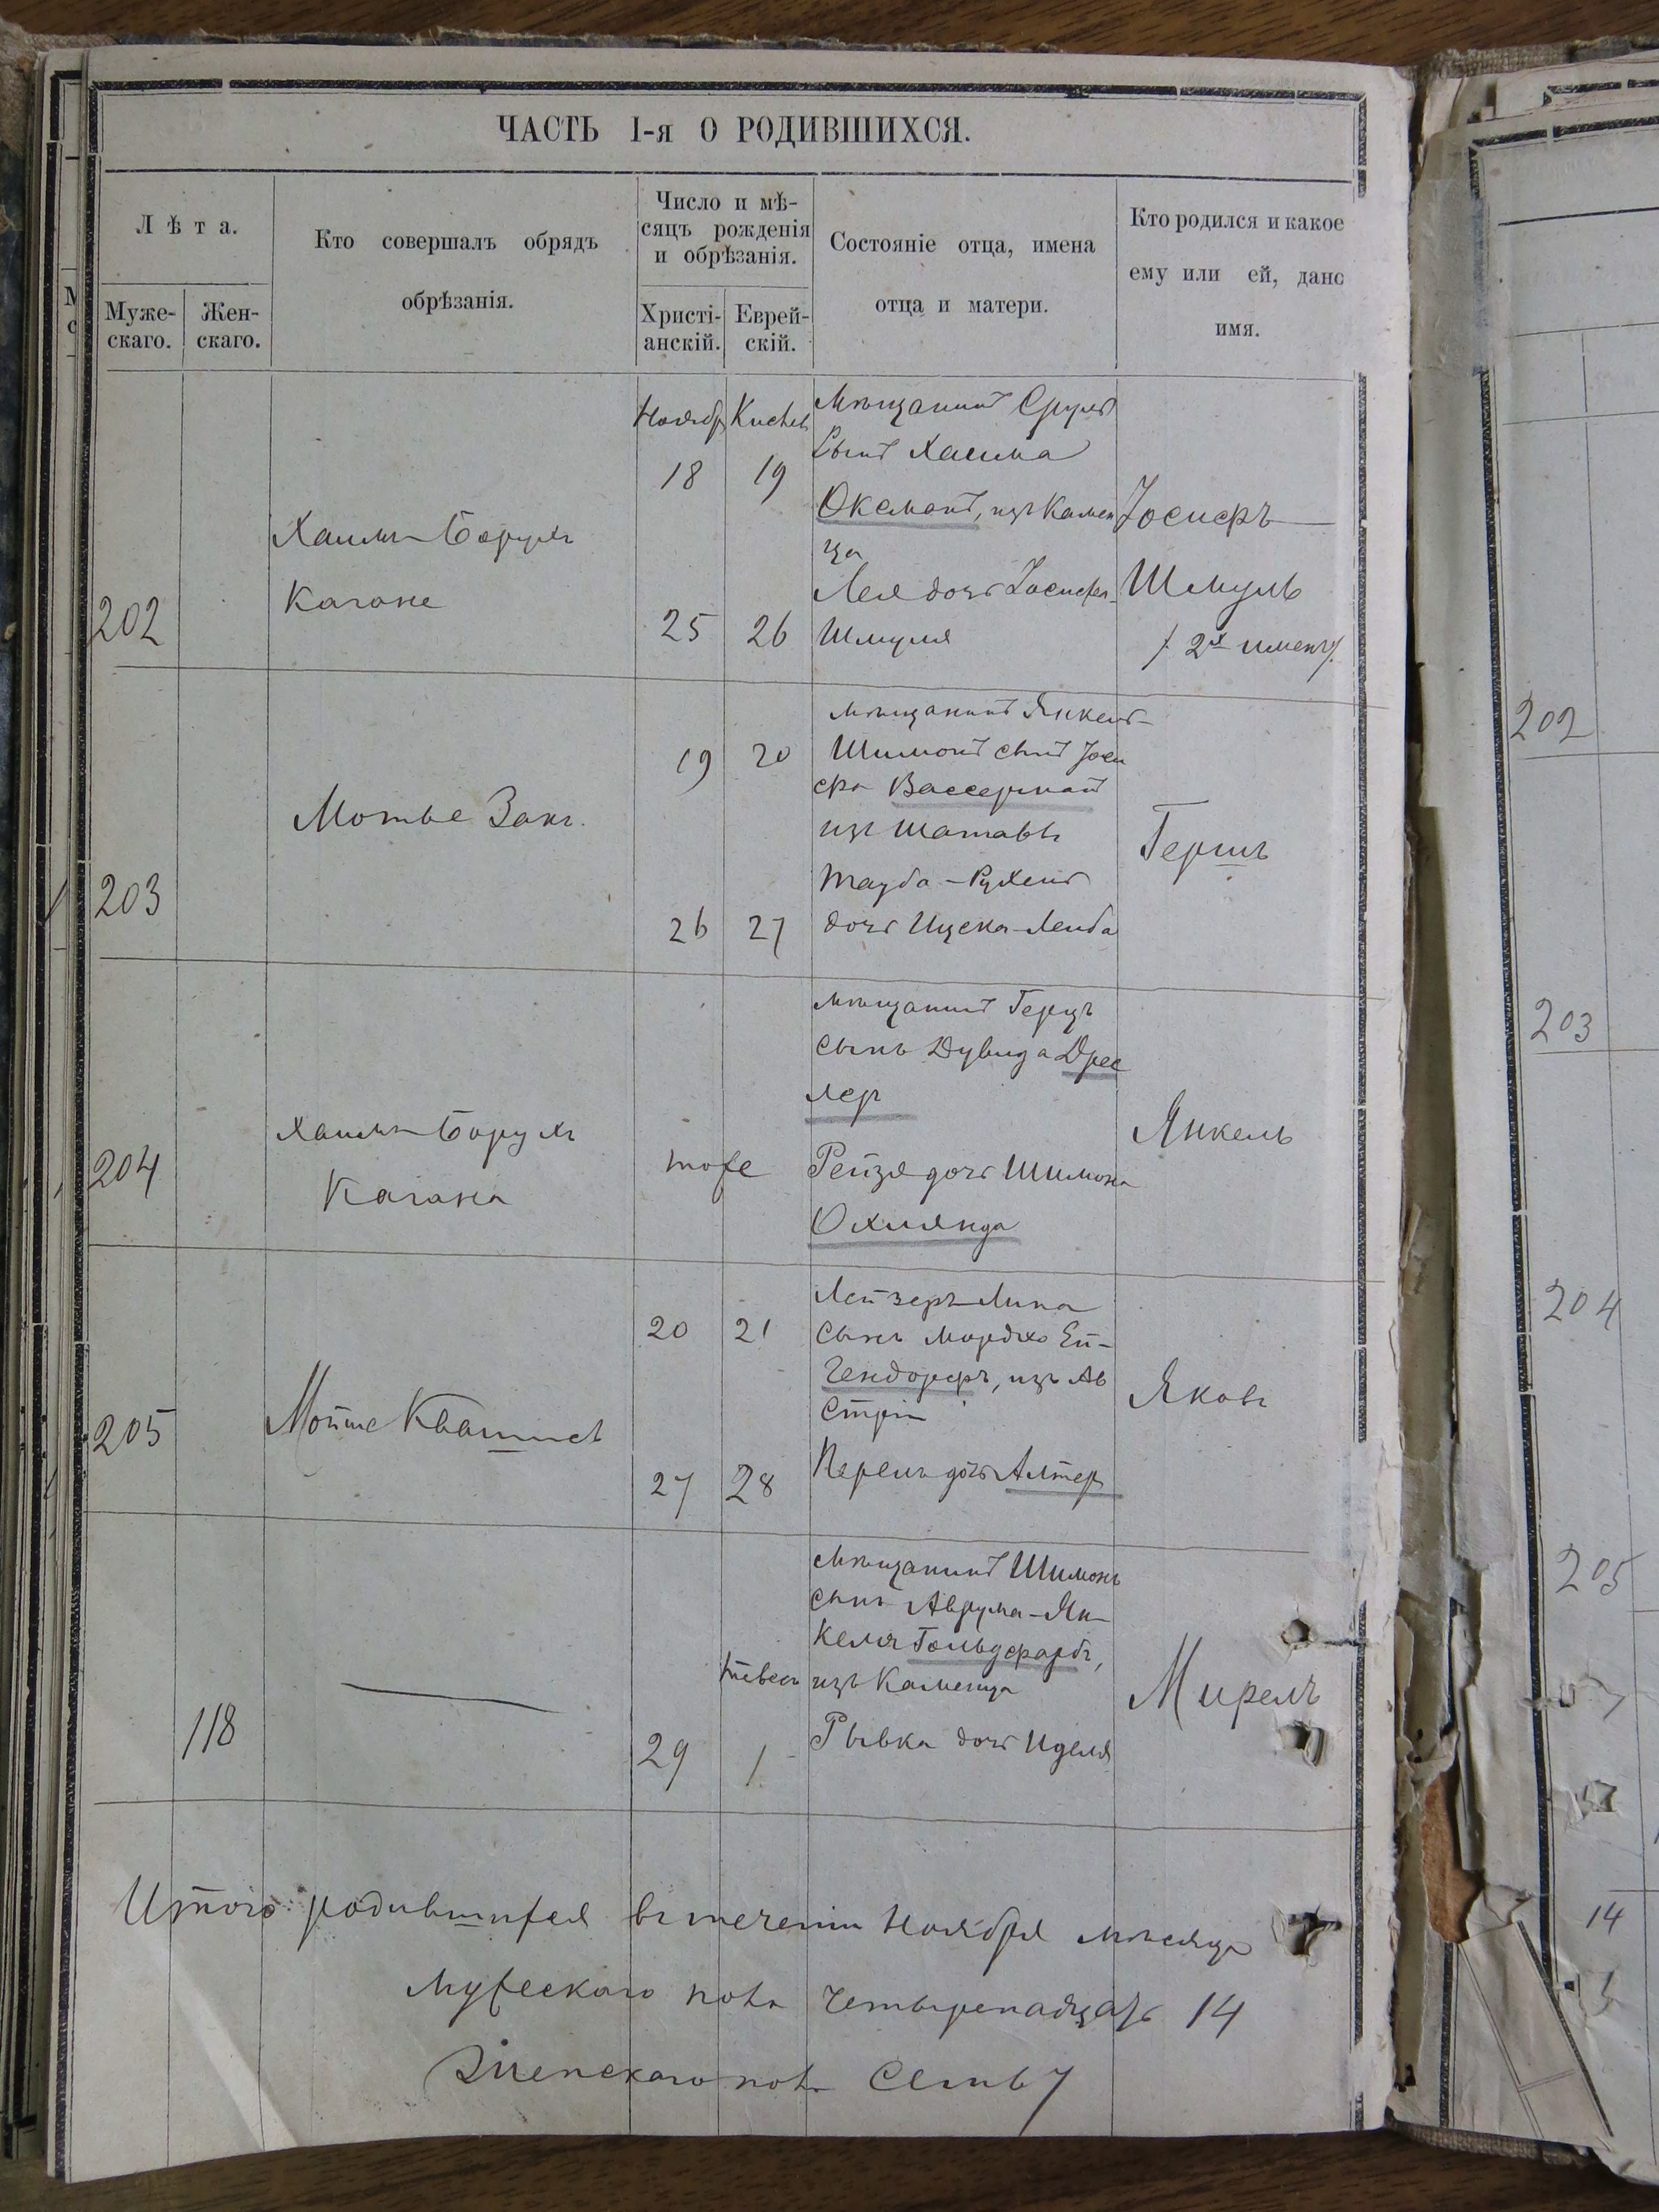 ЧАСТЬ 1-я О РОДИВШИХСЯ.
Лѣта.
Муже-
скаго.
Жен-
скаго.
Кто совершалъ обрядъ
обрѣзанія.
Число и мѣ-
сяцъ рожденія
и обрѣзанія.
Христі-
анскій.
Еврей-
скій.
Состояніе отца, имена
отца и матери.
Кто родился и какое
ему или ей, дано
имя.
202
Хаимъ-Борухъ
Кагане
Ноябрь Кислев
18 19
25 26
Мѣщанинъ Сруль
Сынъ Хаима
Оксманъ, изъ Камен
ца
Лея дочь Іосифа-
Шмуля
Іосифъ
Шмуль
/: 2х именъ/.
203
Мотье Закъ.
19 20
26 27
Мѣщанинъ Янкель-
Шимонъ сынъ Іоси
фа Вассерманъ
изъ Шатавъ
Тауба-Рухель
дочь Ицека-Лейба
Гершъ
204
Хаимъ-Борухъ
Кагана
тоже
Мѣщанинъ Герцъ
сынъ Дувида Дрес
лер
Рейзя дочь Шимона
Охлянда
Янкель
205
Мойше Квашнев
20 21
27 28
Лейзеръ-Липа
сынъ Мордхо Ей-
гендорфъ, изъ Ав
стріи
Перель дочь Алтер
Яковъ
118
Тевесъ
29 1
Мѣщанинъ Шимонъ
сынъ Аврума-Ян-
келя Гольдфарбъ,
изъ Каменца
Рывка дочь Иделя
Мирель
Итого: родившихся въ теченіи Ноября мѣсяца
Мужескаго пола четырнадцать 14
Женскаго пола Семь 7
202
203
204
205
14